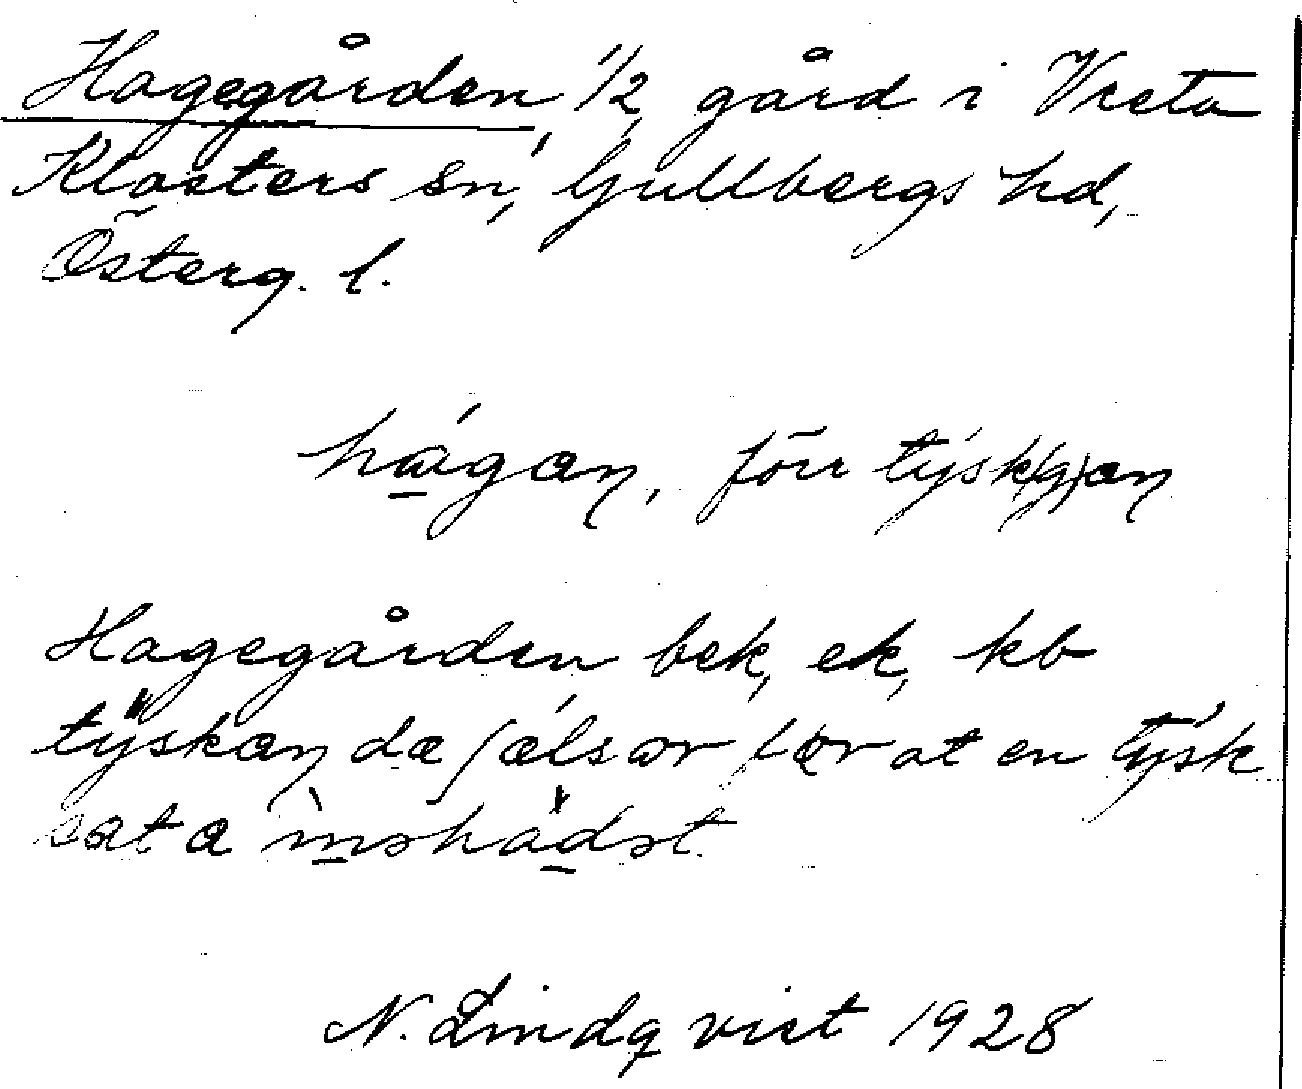 Hagegården, 1/2 gård i Vreta
Klosters sn, Gullbergs hd,
Österg. l.
hágan, förr týsk(g)an
Hagegården bek, ek, kb
týskan da at en týsk
sat a
N. Lindqvist 1928